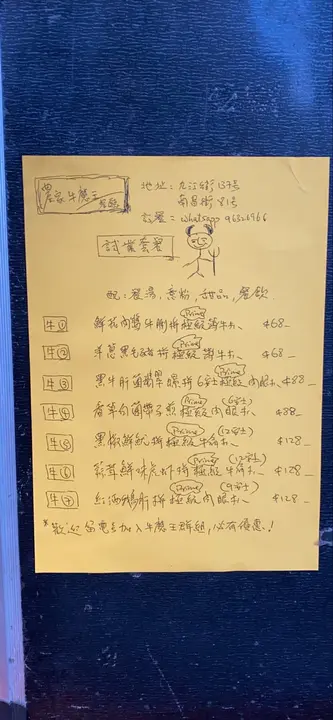 農家牛魔王
地址: 九江街137號
南昌街81號
whatsapp 96326966
試業套餐
配: 餐湯, 意粉, 甜品, 餐飲
牛① 鮮茄肉醬牛脷拼極級(Prime)薄牛扒 $68_
牛② 洋葱黑毛豬拼極級(Prime)薄牛扒 $68_
牛③ 黑牛肝菌翡翠螺拼6安士極級(Prime)肉眼扒 $88_
牛④ 香草白菌帶子煎極級(Prime)肉眼扒 (6安士) $88_
牛⑤ 黑椒鮮魷拼極級(Prime)牛扒 (12安士) $128_
牛⑥ 鮮味虎蝦拼極級(Prime)牛扒 (12安士) $128_
牛⑦ 紅酒鵝肝拼極級(Prime)肉眼扒 (9安士) $128_
*歡迎留電話加入牛魔王群組, 必有優惠!